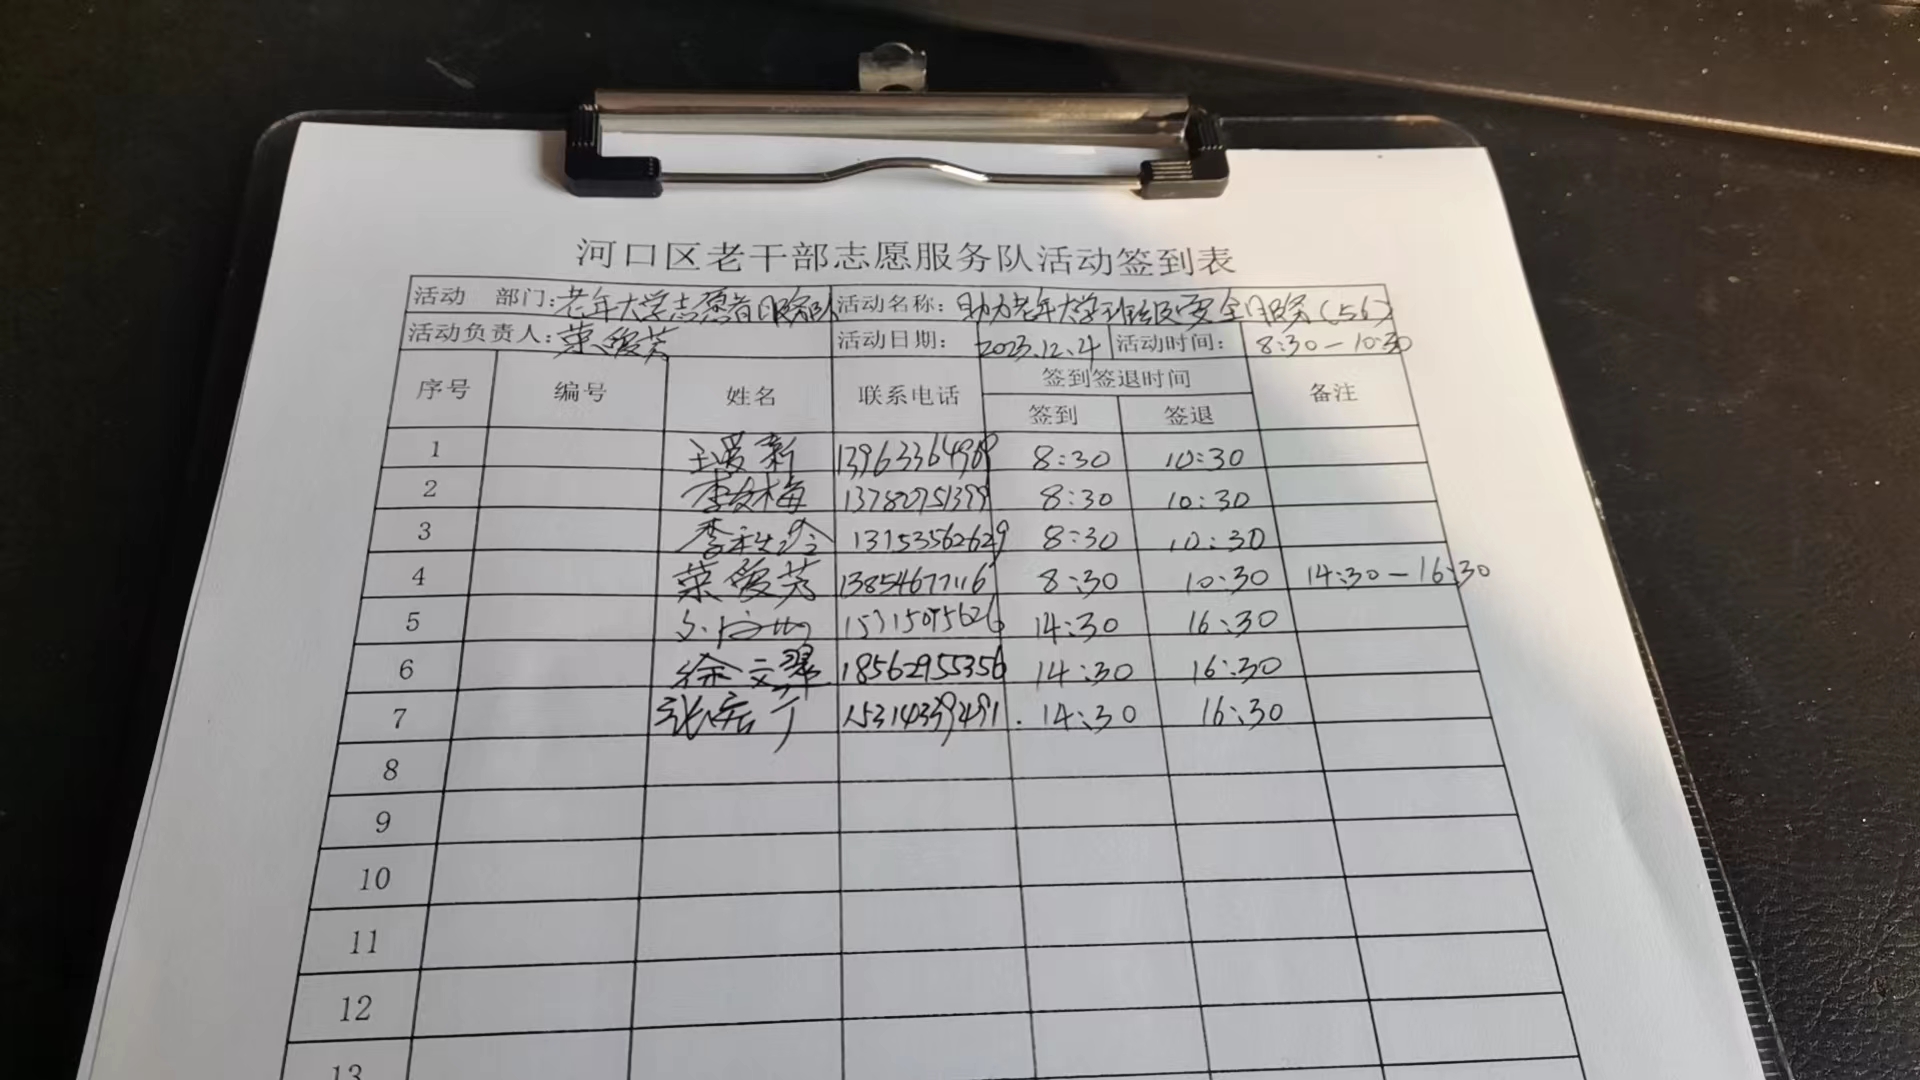 河口区老干部志愿服务队活动签到表
活动 部门：老年大学志愿者服务队 活动名称：助力老年大学班级安全服务(56)
活动负责人：荣俊芳 活动日期：2023.12.4 活动时间：8:30-10:30
序号 编号 姓名 联系电话 签到签退时间 备注
签到 签退
1 王爱新 13963364969 8:30 10:30
2 李友梅 13780751399 8:30 10:30
3 李秀玲 13153562629 8:30 10:30
4 荣俊芳 13854677116 8:30 10:30 14:30-16:30
5 14:30 16:30
6 徐文翠 18562955356 14:30 16:30
7 15314339491 14:30 16:30
8
9
10
11
12
13